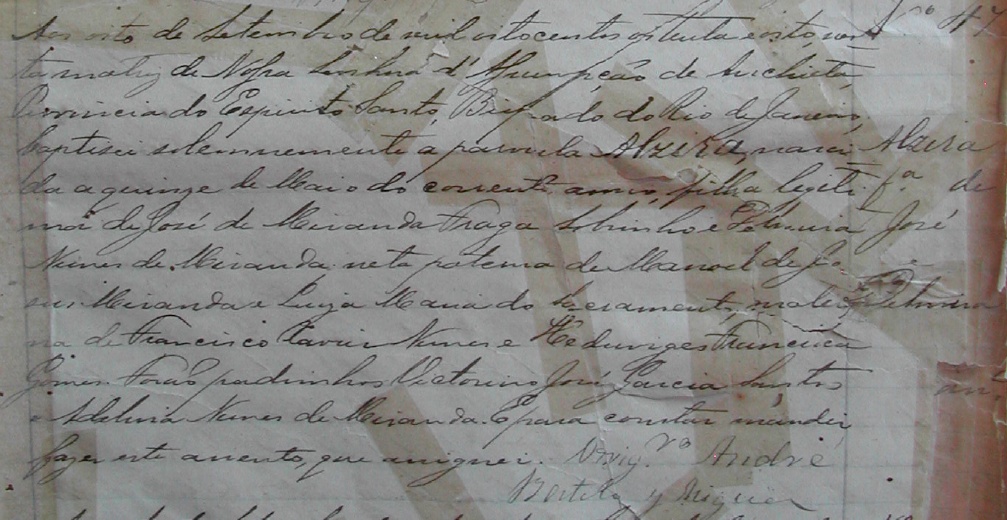 Aos oito de Setembro de mil oitocentos oitenta e oito, nes
ta matriz de Nossa Senhora d'Assumpção de Anchieta,
Provincia do Espirito Santo, Bispado do Rio de Janeiro,
baptisei solemnemente a parvula Alzira, nasci
da a quinze de Maio do corrente anno, filha legiti
ma de José de Miranda Fraga Sobrinho e Felmina
Nunes de Miranda: neta paterna de Manoel de
Miranda e Luiza Maria do Sacramento, mater
na de Francisco Xavier Nunes e Heduviges Francisca
Gomes. Forão padrinhos Victorino José Garcia Santos
e Adelina Nunes de Miranda. E para constar mandei
fazer este assento, que assignei. Vig.ro André
y
Nº 47
Alzira
f.a de
José